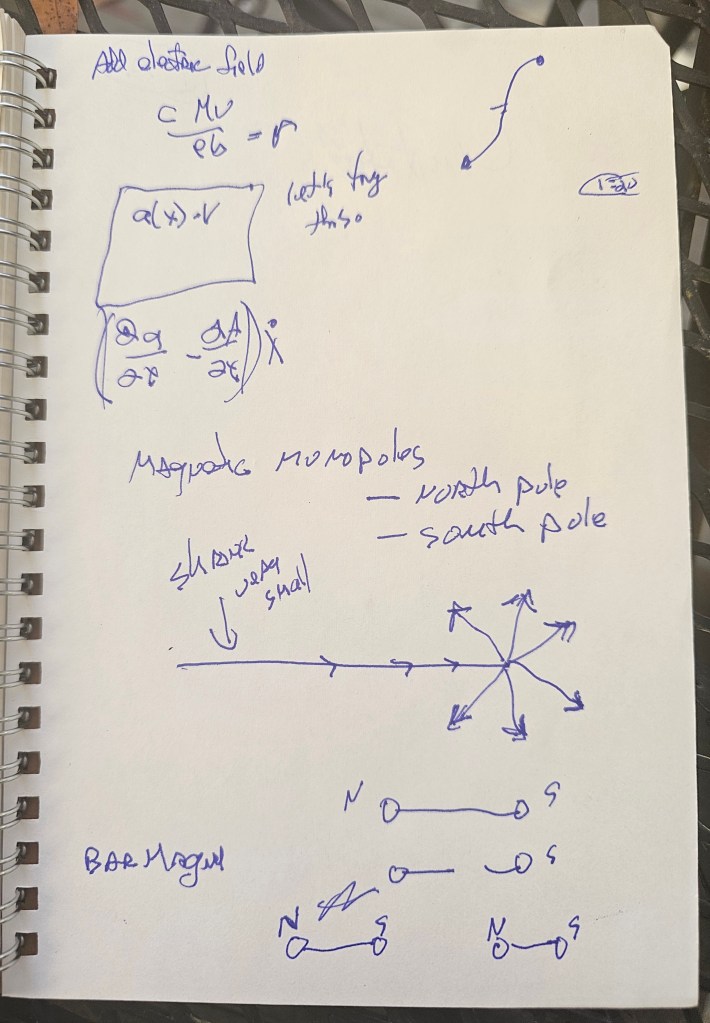 Add electric field
c MV
eb = r
a(x)·V
Let's try
this
(∂a/∂x - ∂A/∂x) ẋ
Magnetic Monopoles
— North pole
— South pole
very
small
N S
S
Bar Magnet
N S
N S